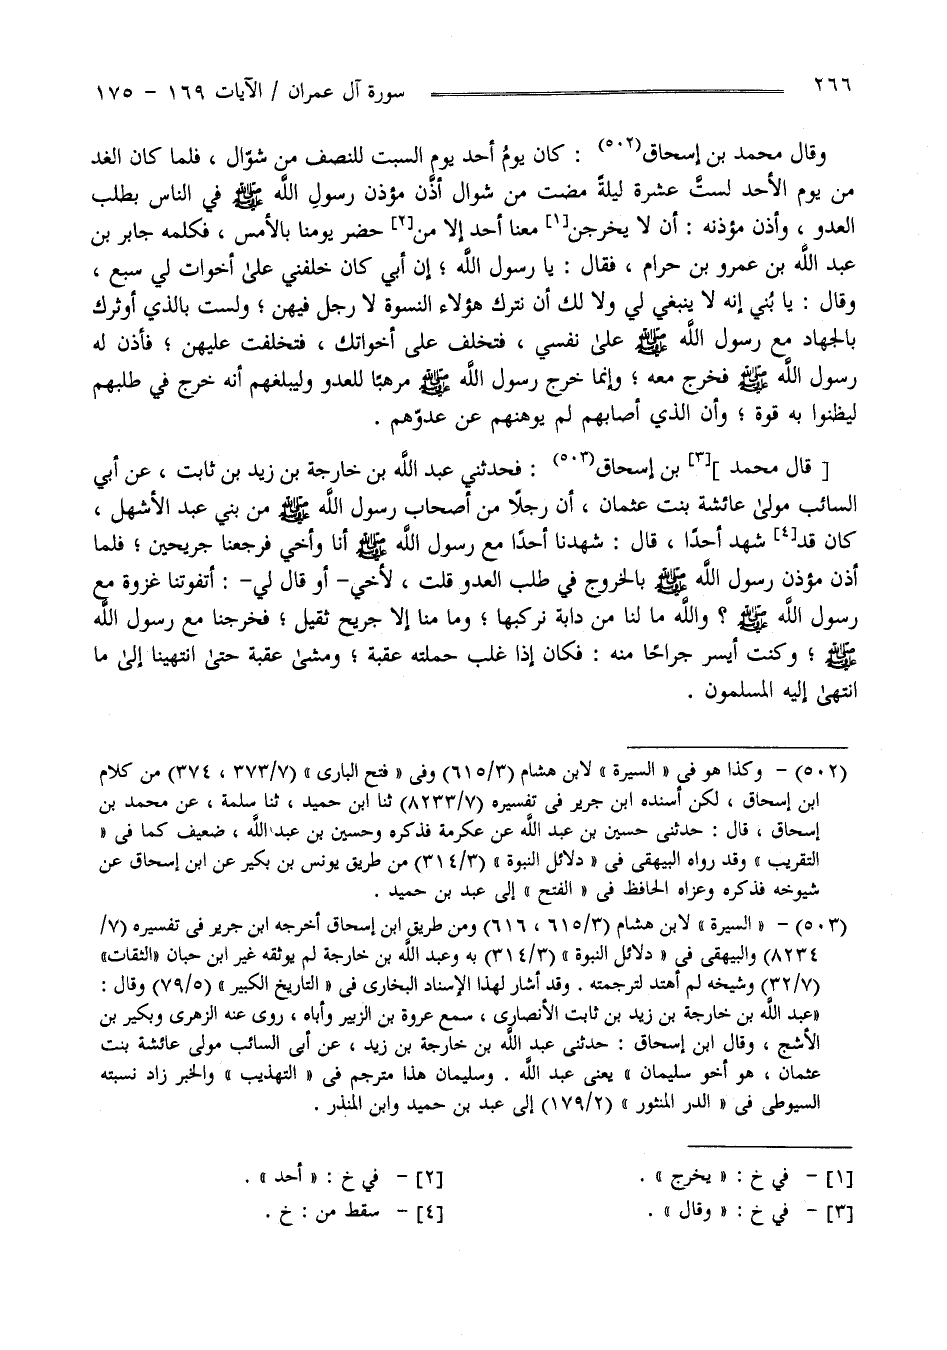 ٢٦٦ سورة آل عمران / الآيات ١٦٩ - ١٧٥
وقال محمد بن إسحاق(٥٠٢) : كان يومُ أحد يوم السبت للنصف من شوّال ، فلما كان الغد
من يوم الأحد لستَّ عشرة ليلةً مضت من شوال أذَّن مؤذن رسولِ اللَّه ﷺ في الناس بطلب
العدو ، وأذن مؤذنه : أن لا يخرجن[١] معنا أحد إلا من[٢] حضر يومنا بالأمس ، فكلمه جابر بن
عبد اللَّه بن عمرو بن حرام ، فقال : يا رسول اللَّه ؛ إن أبي كان خلفني علىٰ أخوات لي سبع ،
وقال : يا بُني إنه لا ينبغي لي ولا لك أن نترك هؤلاء النسوة لا رجل فيهن ؛ ولست بالذي أوثرك
بالجهاد مع رسول اللَّه ﷺ علىٰ نفسي ، فتخلف على أخواتك ، فتخلفت عليهن ؛ فأذن له
رسول اللَّه ﷺ فخرج معه ؛ وإنما خرج رسول اللَّه ﷺ مرهبًا للعدو وليبلغهم أنه خرج في طلبهم
ليظنوا به قوة ؛ وأن الذي أصابهم لم يوهنهم عن عدوّهم .
[ قال محمد ][٣] بن إسحاق(٥٠٣) : فحدثني عبد اللَّه بن خارجة بن زيد بن ثابت ، عن أبي
السائب مولىٰ عائشة بنت عثمان ، أن رجلًا من أصحاب رسول اللَّه ﷺ من بني عبد الأشهل ،
كان قد[٤] شهد أحدًا ، قال : شهدنا أحدًا مع رسول اللَّه ﷺ أنا وأخي فرجعنا جريحين ؛ فلما
أذن مؤذن رسول اللَّه ﷺ بالخروج في طلب العدو قلت ، لأخي- أو قال لي- : أتفوتنا غزوة مع
رسول اللَّه ﷺ ؟ واللَّه ما لنا من دابة نركبها ؛ وما منا إلا جريح ثقيل ؛ فخرجنا مع رسول اللَّه
ﷺ ؛ وكنت أيسر جراحًا منه : فكان إذا غلب حملته عقبة ؛ ومشىٰ عقبة حتىٰ انتهينا إلىٰ ما
انتهىٰ إليه المسلمون .
(٥٠٢) - وكذا هو فى « السيرة » لابن هشام (٦١٥/٣) وفى « فتح البارى » (٣٧٣/٧ ، ٣٧٤) من كلام
ابن إسحاق ، لكن أسنده ابن جرير فى تفسيره (٨٢٣٣/٧) ثنا ابن حميد ، ثنا سلمة ، عن محمد بن
إسحاق ، قال : حدثنى حسين بن عبد اللَّه عن عكرمة فذكره وحسين بن عبد اللَّه ، ضعيف كما فى «
التقريب » وقد رواه البيهقى فى « دلائل النبوة » (٣١٤/٣) من طريق يونس بن بكير عن ابن إسحاق عن
شيوخه فذكره وعزاه الحافظ فى « الفتح » إلى عبد بن حميد .
(٥٠٣) - « السيرة » لابن هشام (٦١٥/٣ ، ٦١٦) ومن طريق ابن إسحاق أخرجه ابن جرير فى تفسيره (٧/
٨٢٣٤) والبيهقى فى « دلائل النبوة » (٣١٤/٣) به وعبد اللَّه بن خارجة لم يوثقه غير ابن حبان «الثقات»
(٣٢/٧) وشيخه لم أهتد لترجمته . وقد أشار لهذا الإسناد البخارى فى « التاريخ الكبير » (٧٩/٥) وقال :
«عبد اللَّه بن خارجة بن زيد بن ثابت الأنصارى ، سمع عروة بن الزبير وأباه ، روى عنه الزهرى وبكير بن
الأشج ، وقال ابن إسحاق : حدثنى عبد اللَّه بن خارجة بن زيد ، عن أبى السائب مولى عائشة بنت
عثمان ، هو أخو سليمان » يعنى عبد اللَّه . وسليمان هذا مترجم فى « التهذيب » والخبر زاد نسبته
السيوطى فى « الدر المنثور » (١٧٩/٢) إلى عبد بن حميد وابن المنذر .
[١] - في خ : « يخرج » . [٢] - في خ : « أحد » .
[٣] - في خ : « وقال » . [٤] - سقط من : خ .